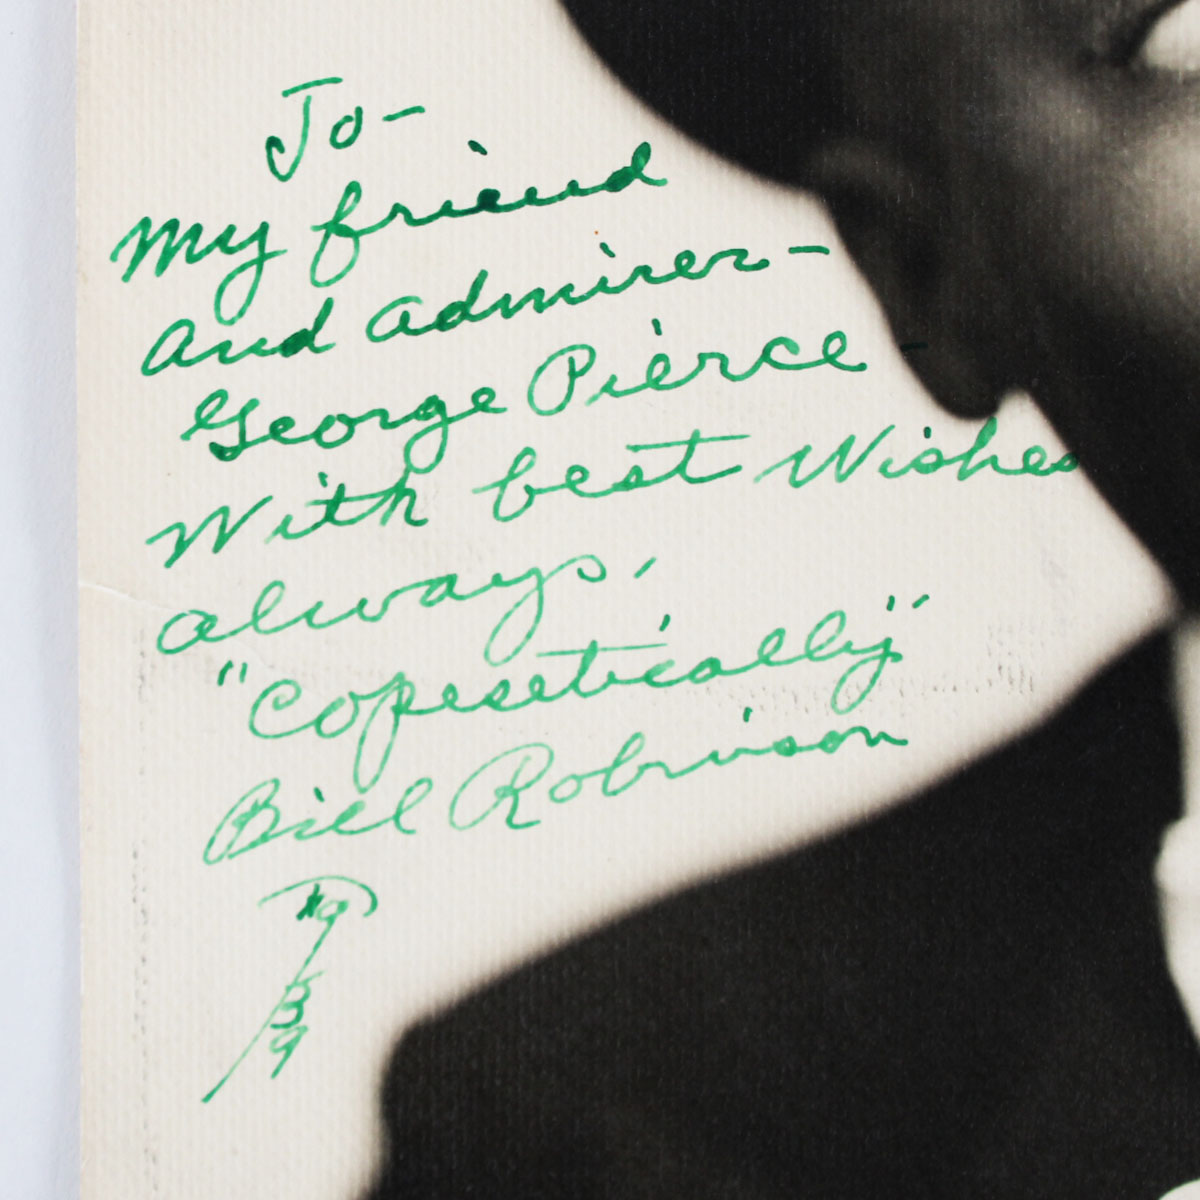 To-
My friend
And Admirer-
George Pierce-
With best Wishes
always,
"Copesetically"
Bill Robinson